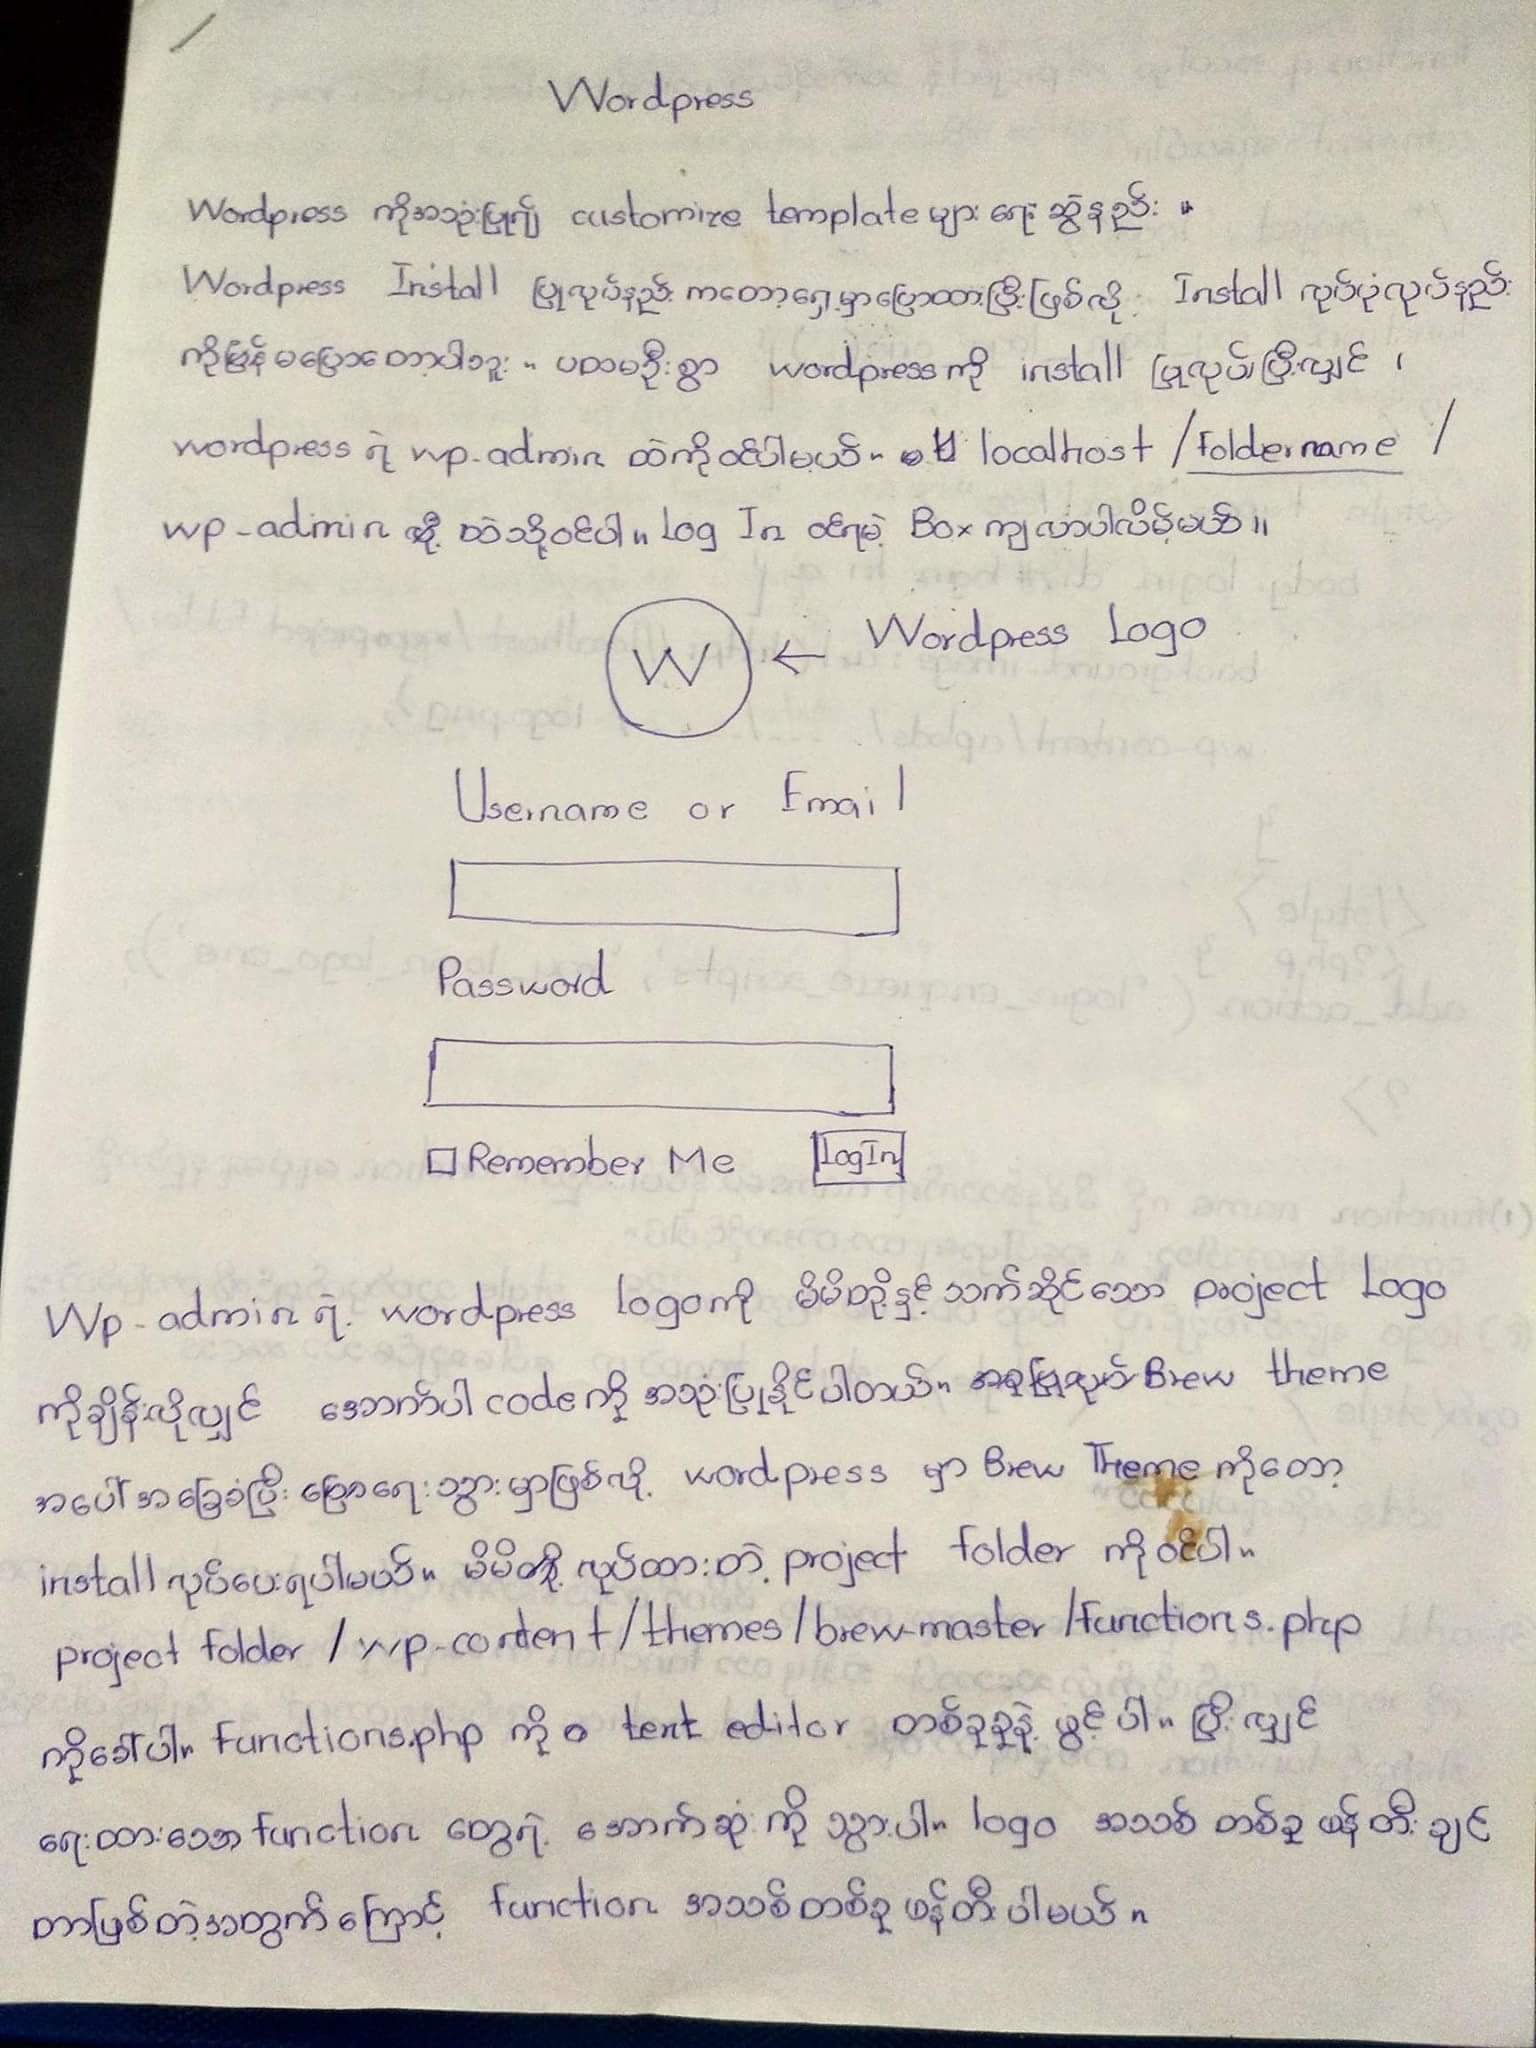 Wordpress
Wordpress ကိုအသုံးပြု၍ customize template များ ရေးဆွဲနည်း ။
Wordpress Install ပြုလုပ်နည်း ကတော့ရှေ့မှာပြောထားပြီးဖြစ်လို့ Install လုပ်ပုံလုပ်နည်း
ကိုပြန်မပြောတော့ပါဘူး ။ ပထမဦးစွာ wordpress ကို install ပြုလုပ်ပြီးလျှင် ၊
wordpress ရဲ့ wp-admin ထဲကိုဝင်ပါမယ်။ localhost /foldername /
wp-admin ဆို့ ထဲသို့ဝင်ပါ။ Log In ဝင်ရမဲ့ Box ကျလာပါလိမ့်မယ်။
W ← Wordpress Logo
Username or Email
Password
Remember Me LogIn
Wp-admin ရဲ့ wordpress logo ကို မိမိတို့နှင့်သက်ဆိုင်သော project Logo
ကိုချိန်းလိုလျှင် အောက်ပါ code ကို အသုံးပြုနိုင်ပါတယ်။ Brew theme
အပေါ်အခြေခံပြီး ရေးသွားမှာဖြစ်လို့ wordpress မှာ Brew Theme ကိုတော့
install လုပ်ပေးရပါမယ်။ မိမိတို့ လုပ်ထားတဲ့ project folder ကိုဝင်ပါ။
project folder /wp-content/themes/brew-master/functions.php
ကိုခေါ်ပါ။ Functions.php ကို text editor တစ်ခုခုနဲ့ ဖွင့်ပါ။ ပြီးလျှင်
ရေးထားသော function တွေရဲ့ အောက်ဆုံးကို သွားပါ။ logo အသစ် တစ်ခု ဖန်တီးချင်
တာဖြစ်တဲ့အတွက်ကြောင့် function အသစ်တစ်ခု ဖန်တီးပါမယ်။